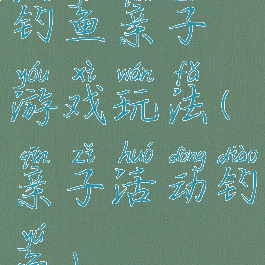 钓鱼亲子
yóu xì wán fǎ
游戏玩法(
qīn zǐ huó dòng diào
亲子活动钓
yú
鱼)